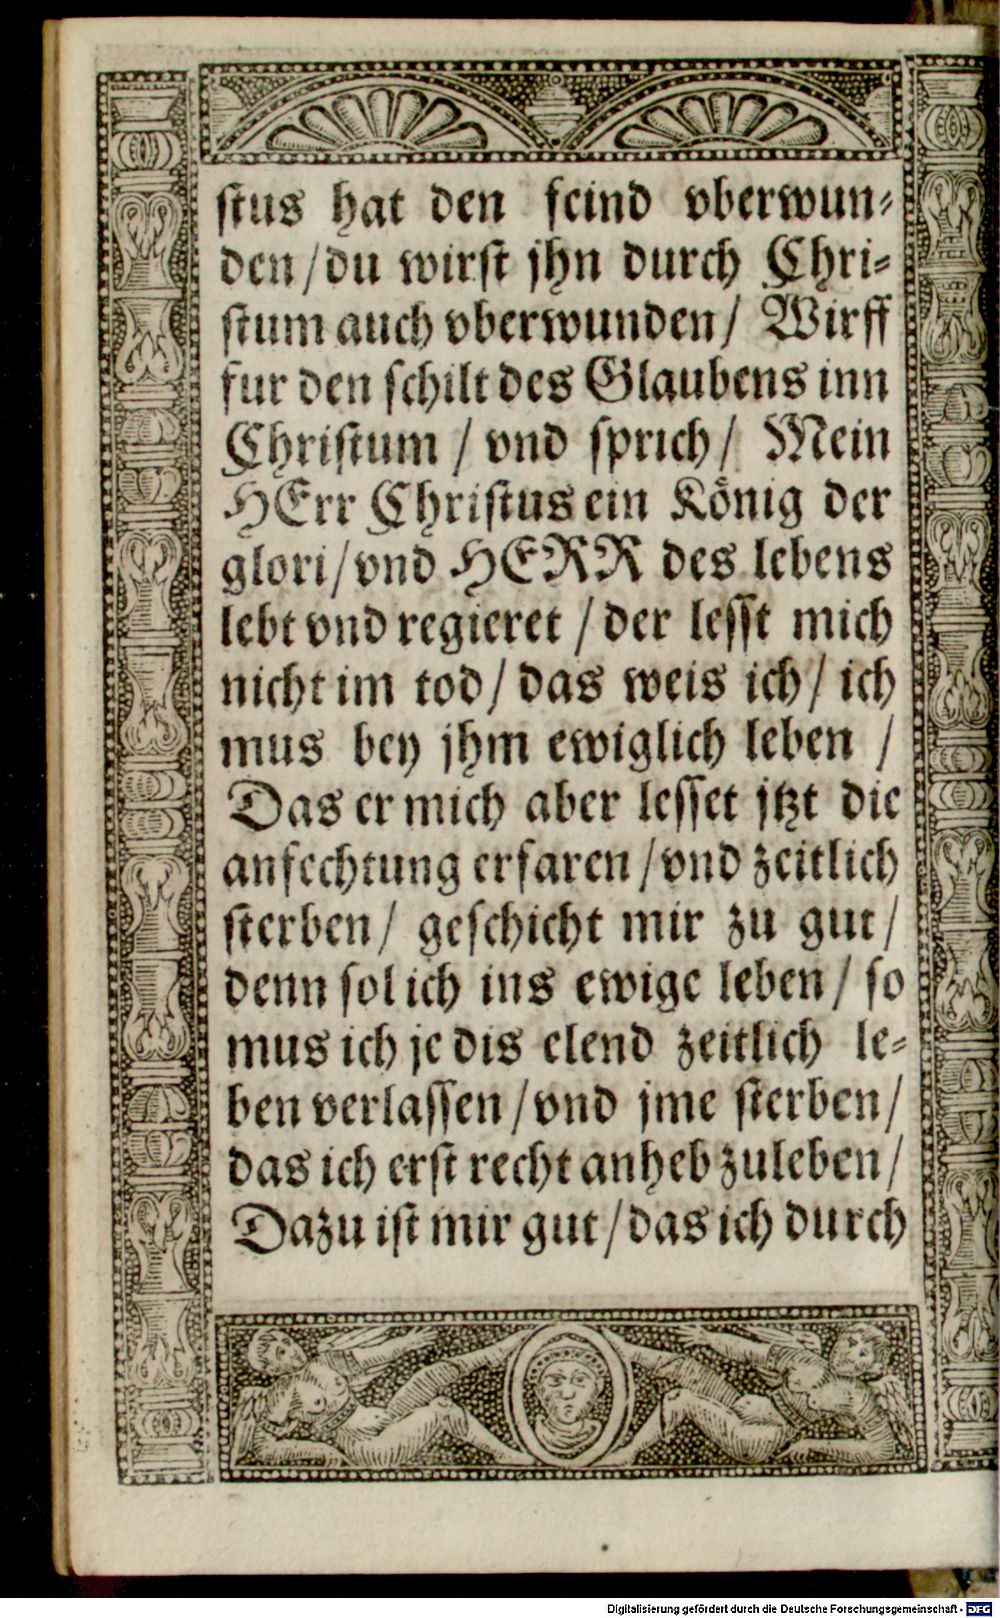 stus hat den feind vberwun⸗
den/du wirst jhn durch Chri⸗
stum auch vberwunden/ Wirff
fur den schilt des Glaubens inn
Christum / vnd sprich/ Mein
HErr Christus ein König der
glori/vnd HERR des lebens
lebt vnd regieret /der lesst mich
nicht im tod/ das weis ich/ ich
mus bey jhm ewiglich leben /
Das er mich aber lesset jtzt die
anfechtung erfaren/vnd zeitlich
sterben/ geschicht mir zu gut/
denn sol ich ins ewige leben/ so
mus ich je dis elend zeitlich le⸗
ben verlassen/vnd jme sterben/
das ich erst recht anheb zuleben/
Dazu ist mir gut/das ich durch
Digitalisierung gefördert durch die Deutsche Forschungsgemeinschaft - DFG